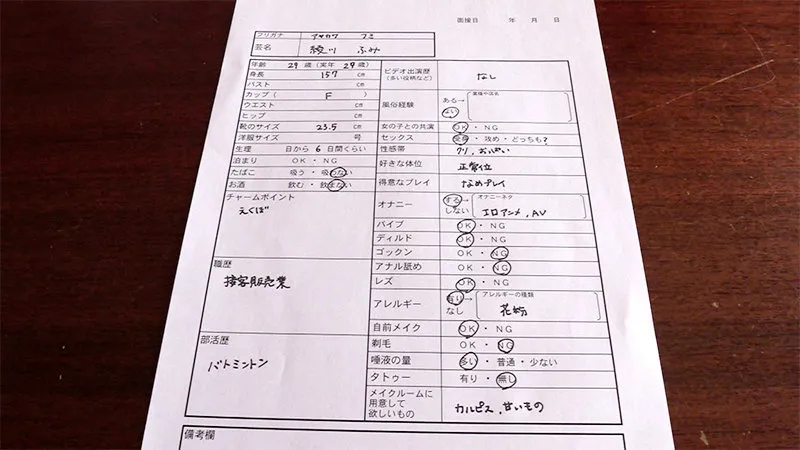 面接日 年 月 日
フリガナ アヤカワ フミ
芸名 綾川 ふみ
年齢 29 歳(実年 29 歳)
身長 157 cm
バスト cm
カップ( F )
ウエスト cm
ヒップ cm
靴のサイズ 23.5 cm
洋服サイズ 号
生理 日から 6 日間くらい
泊まり OK・NG
たばこ 吸う・吸わない
お酒 飲む・飲まない
チャームポイント
えくぼ
職歴
接客販売業
部活歴
バトミントン
ビデオ出演歴 なし
(多い役柄など)
風俗経験 ある→ 業種や店名
ない
女の子との共演 OK・NG
セックス 受身・攻め・どっちも?
性感帯 クリ、おっぱい
好きな体位 正常位
得意なプレイ なめプレイ
オナニー する→ オナニーネタ
しない エロアニメ、AV
バイブ OK・NG
ディルド OK・NG
ゴックン OK・NG
アナル舐め OK・NG
レズ OK・NG
アレルギー 有り→ アレルギーの種類
なし 花粉
自前メイク OK・NG
剃毛 OK・NG
唾液の量 多い・普通・少ない
タトゥー 有り・無し
メイクルームに
用意して
欲しいもの カルピス、甘いもの
備考欄